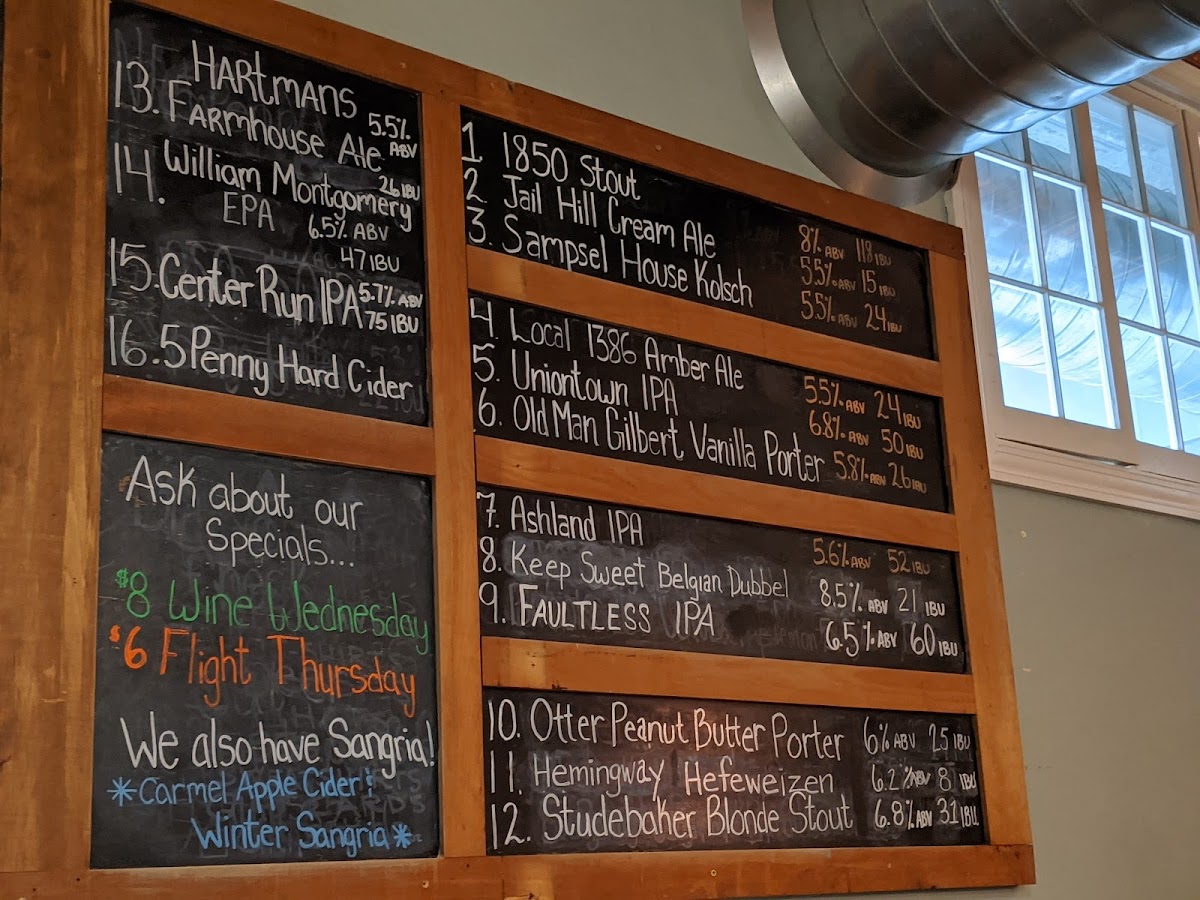 Hartmans
13. Farmhouse Ale 5.5% ABV
26 IBU
14. William Montgomery
EPA 6.5% ABV
47 IBU
15. Center Run IPA 5.7% ABV
75 IBU
16. 5 Penny Hard Cider
Ask about our
Specials...
$8 Wine Wednesday
$6 Flight Thursday
We also have Sangria!
*Carmel Apple Cider &
Winter Sangria*
1 1850 Stout 8% ABV 118 IBU
2 Jail Hill Cream Ale 5.5% ABV 15 IBU
3. Sampsel House Kolsch 5.5% ABV 24 IBU
4 Local 1386 Amber Ale 5.5% ABV 24 IBU
5. Uniontown IPA 6.8% ABV 50 IBU
6. Old Man Gilbert Vanilla Porter 5.8% ABV 26 IBU
7. Ashland IPA 5.6% ABV 52 IBU
8. Keep Sweet Belgian Dubbel 8.5% ABV 21 IBU
9. FAULTLESS IPA 6.5% ABV 60 IBU
10. Otter Peanut Butter Porter 6% ABV 25 IBU
11. Hemingway Hefeweizen 6.2% ABV 8 IBU
12. Studebaker Blonde Stout 6.8% ABV 31 IBU